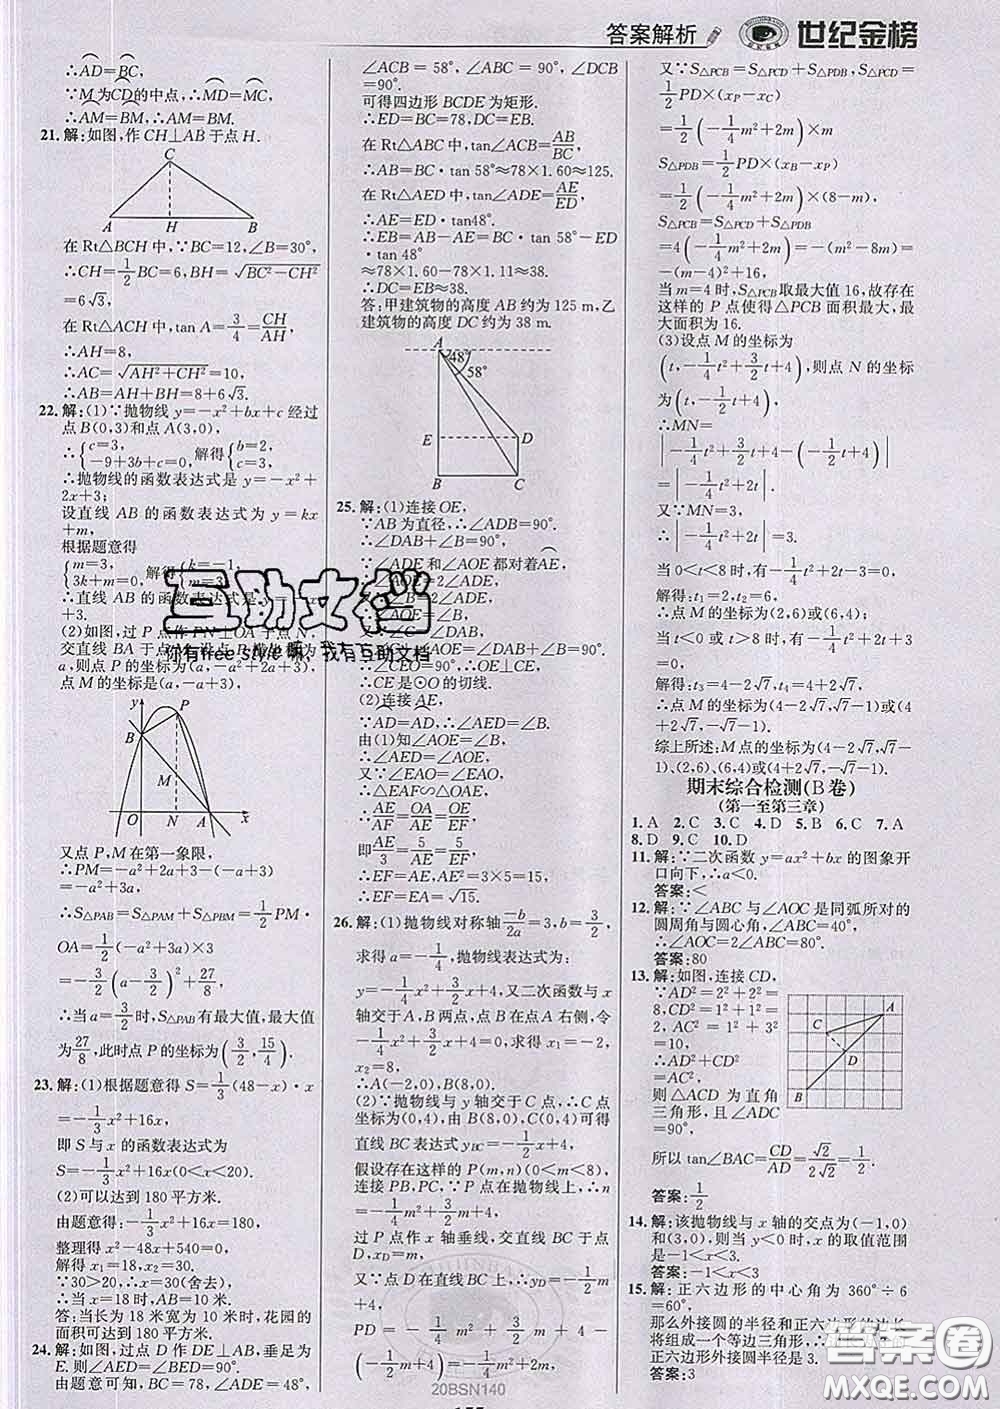 答案解析 世纪金榜
∴AD=BC,
∵M为CD的中点,∴MD=MC,
∴AM=BM,∴AM=BM.
21.解:如图,作 CH⊥AB于点 H.
C
A H B
在 Rt△BCH 中,∵BC=12,∠B=30°,
∴CH=1/2 BC=6,BH=√(BC²−CH²)
=6√3,
在 Rt△ACH 中,tan A=3/4=CH/AH
∴AH=8,
∴AC=√(AH²+CH²)=10,
∴AB=AH+BH=8+6√3.
22.解:(1)∵抛物线 y=−x²+bx+c 经过
点 B(0,3)和点 A(3,0),
∴{c=3, −9+3b+c=0, 解得{b=2, c=3,
∴抛物线的函数表达式是 y=−x²+
2x+3;
设直线 AB 的函数表达式为 y=kx
+m,
根据题意得
{m=3, 3k+m=0, 解得{k=−1, m=3,
∴直线 AB 的函数表达式是 y=−x
+3.
(2)如图,过 P 点作 PN⊥OA于点 N,
交直线 BA于点 M,设点 P 横坐标为
a,则点 P 的坐标为(a,−a²+2a+3),
点 M 的坐标是(a,−a+3),
y P
B
M
O N A x
又点 P,M 在第一象限,
∴PM=−a²+2a+3−(−a+3)
=−a²+3a,
∴S△PAB=S△PAM+S△PBM=1/2 PM·
OA=1/2(−a²+3a)×3
=−3/2(a−3/2)²+27/8
∴当 a=3/2时,S△PAB有最大值,最大值
为27/8,此时点 P 的坐标为(3/2,15/4).
23.解:(1)根据题意得 S=1/3(48−x)·x
=−1/3x²+16x,
即 S 与 x 的函数表达式为
S=−1/3x²+16x(0<x<20).
(2)可以达到 180 平方米.
由题意得:−1/3x²+16x=180,
整理得 x²−48x+540=0,
解得 x₁=18,x₂=30.
∵30>20,∴x=30(舍去),
∴当 x=18 时,AB=10 米.
答:当长为 18 米宽为 10 米时,花园的
面积可达到 180 平方米.
24.解:如图,过点 D 作 DE⊥AB,垂足为
E.则∠AED=∠BED=90°.
由题意可知,∠BCD=90°,∠ADE=48°,
∠ACB=58°,∠ABC=90°,∠DCB
=90°.
可得四边形 BCDE 为矩形.
∴ED=BC=78,DC=EB.
在 Rt△ABC 中,tan∠ACB=AB/BC,
∴AB=BC·tan 58°≈78×1.60≈125.
在 Rt△AED 中,tan∠ADE=AE/ED
∴AE=ED·tan48°.
∴EB=AB−AE=BC·tan 58°−ED
·tan 48°
≈78×1.60−78×1.11≈38.
∴DC=EB≈38.
答:甲建筑物的高度 AB 约为 125 m,乙
建筑物的高度 DC 约为 38 m.
A
48°
58°
E D
B C
25.解:(1)连接 OE,
∵AB为直径,∴∠ADB=90°.
∴∠DAB+∠B=90°.
∵∠ADE和∠AOE都对着AE,
∴∠AOE=2∠ADE,
∠AOE=2∠B,
(2)连接 AE,
∴CE是⊙O的切线.
∵AD=AD,∴∠AED=∠B.
由(1)知∠AOE=∠B,
∴∠AOE=∠AED.
又∵∠EAF=∠OAE,
∴△EAF∽△OAE,
∴AE/EF=OA/OE=1,AE/AF=OA/AE,
∴EF=AE,
即AE/3=5/AE,
∴EF=AE,AE²=3×5=15.
∴EF=EA=√15.
26.解:(1)抛物线对称轴−b/2a=3,b=3/2,
求得 a=−1/4,抛物线表达式为:
y=−1/4x²+3/2x+4,又二次函数与 x
轴交于 A,B 两点,点 B 在点 A 右侧,令
−1/4x²+3/2x+4=0,求得 x₁=−2,
x₂=8;
∴A(−2,0),B(8,0).
(2)∵抛物线与 y轴交于点 C,∴点 C
坐标为(0,4),由 B(8,0),C(0,4)可得
直线 BC 表达式 yBC=−1/2x+4,
假设存在这样的 P(m,n)(0<m<8),
连接 PB,PC,∵P 点在抛物线上,∴n
=−1/4m²+3/2m+4,
过 P 点作 x 轴垂线,交直线 BC 于点
D,∴xD=m,
又∵点 D 在直线 BC 上,∴yD=−1/2m
+4,
PD=−1/4m²+3/2m+4−
(−1/2m+4)=−1/4m²+2m,
又∵S△PCB=S△PCD+S△PDB,S△PCD=
1/2PD×(xP−xC)
=1/2(−1/4m²+2m)×m
S△PDB=1/2PD×(xB−xP)
=1/2(−1/4m²+2m)×(8−m)
S△PCB=S△PCD+S△PDB
=4(−1/4m²+2m)=−(m²−8m)=
−(m−4)²+16,
当 m=4 时,S△PCB取最大值 16,故存在
这样的 P 点使得△PCB 面积最大,最
大面积为 16.
(3)设点 M 的坐标为
(t,−1/4t²+3/2t+4),则点 N 的坐标
为(t,−1/2t+4)
∴MN=
|−1/4t²+3/2t+4−(−1/2t+4)|
=|−1/4t²+2t|.
又∵MN=3,
∴|−1/4t²+2t|=3,
当 0<t<8 时,有−1/4t²+2t−3=0,
解得:t₁=2,t₂=6,
∴点 M 的坐标为(2,6)或(6,4);
当 t<0 或 t>8 时,有−1/4t²+2t+3
=0,
解得:t₃=4−2√7,t₄=4+2√7,
∴点 M 的坐标为(4−2√7,√7−1)或(4
+2√7,−√7−1).
综上所述:M 点的坐标为(4−2√7,√7
−1),(2,6),(6,4)或(4+2√7,−√7−1).
期末综合检测(B卷)
(第一至第三章)
1.A 2.C 3.C 4.D 5.B 6.C 7.A
8.D 9.C 10.D
11.解:∵二次函数 y=ax²+bx 的图象开
口向下,∴a<0.
答案:<
12.解:∵∠ABC与∠AOC是同弧所对的
圆周角与圆心角,∠ABC=40°,
∴∠AOC=2∠ABC=80°.
答案:80
13.解:如图,连接 CD,
∵AD²=2²+2²=
8,CD²=1²+1²=
2,AC²=1²+3²
=10,
∴AD²+CD²
=AC²,
则△ACD 为直角
三角形,且∠ADC
=90°,
A
C
D
B
所以 tan∠BAC=CD/AD=√2/2√2=1/2.
答案:1/2
14.解:该抛物线与 x 轴的交点为(−1,0)
和(3,0),所以当 y<0时,x的取值范围
是−1<x<3.
答案:−1<x<3
15.解:正六边形的中心角为 360°÷6
=60°,
那么外接圆的半径和正六边形的边长
将组成一个等边三角形,
正六边形外接圆半径是 3.
答案:3
互助文档
你有free style嘛,我有互助文档
20BSN140
答案圈
MXQE.COM